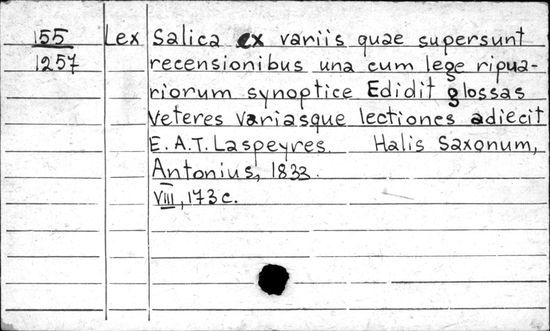 155 Lex Salica ex variis quae supersunt
1257 recensionibus una cum lege ripua-
riorum synoptice Edidit glossas
veteres variasque lectiones adiecit
E. A. T. Laspeyres Halis Saxonum,
Antonius, 1833.
VIII, 173 c.